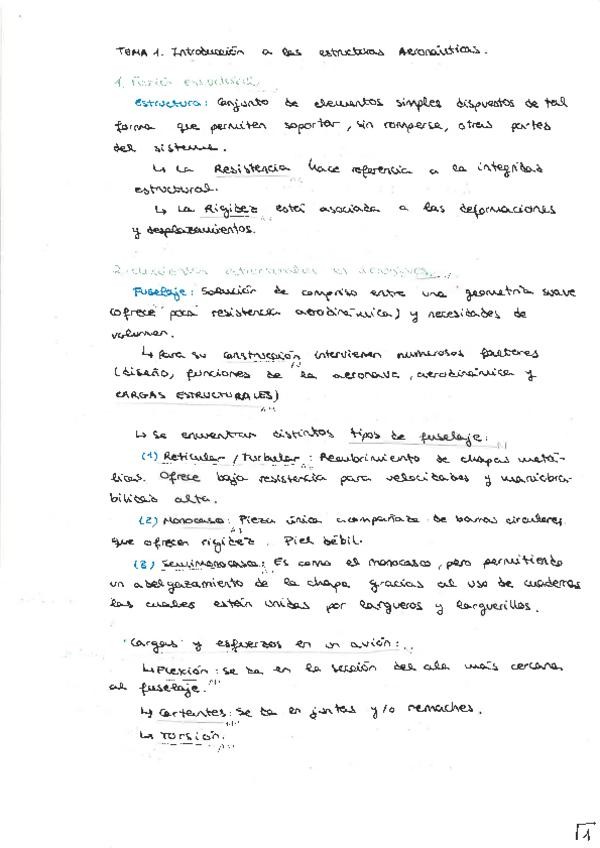 TEMA 1. Introducción a las estructuras Aeronáuticas.
1. Función estructural
Estructura: Conjunto de elementos simples dispuestos de tal
forma que permiten soportar, sin romperse, otras partes
del sistema.
↳ La Resistencia hace referencia a la integridad
estructural.
↳ La Rigidez está asociada a las deformaciones
y desplazamientos.
2.
Fuselaje: Solución de compriso entre una geometría suave
(ofrece poca resistencia aerodinámica) y necesidades de
volumen.
↳ Para su construcción intervienen numerosos factores
(diseño, funciones de la aeronave, aerodinámica y
CARGAS ESTRUCTURALES)
↳ Se encuentran distintos tipos de fuselaje:
(1) Reticular / Tubular: Recubrimiento de chapas metá-
licas. Ofrece baja resistencia para velocidades y maniobra-
bilidad alta.
(2) Monocasco: Pieza única acompañada de barras circulares
que ofrecen rigidez. Piel débil.
(3) Semimonocasco: Es como el monocasco, pero permitiendo
un adelgazamiento de la chapa gracias al uso de cuadernas
las cuales están unidas por largueros y larguerillos.
Cargas y esfuerzos en un avión:
↳ Flexión: Se da en la sección del ala más cercana
al fuselaje.
↳ Cortantes: Se da en juntas y/o remaches.
↳ Torsión.
1